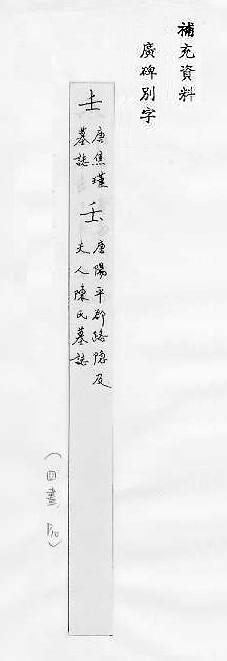 補充資料
廣碑別字
𡈼 唐焦瑾墓誌 壬 唐陽平郡路隱及夫人陳氏墓誌
(四畫, P10)